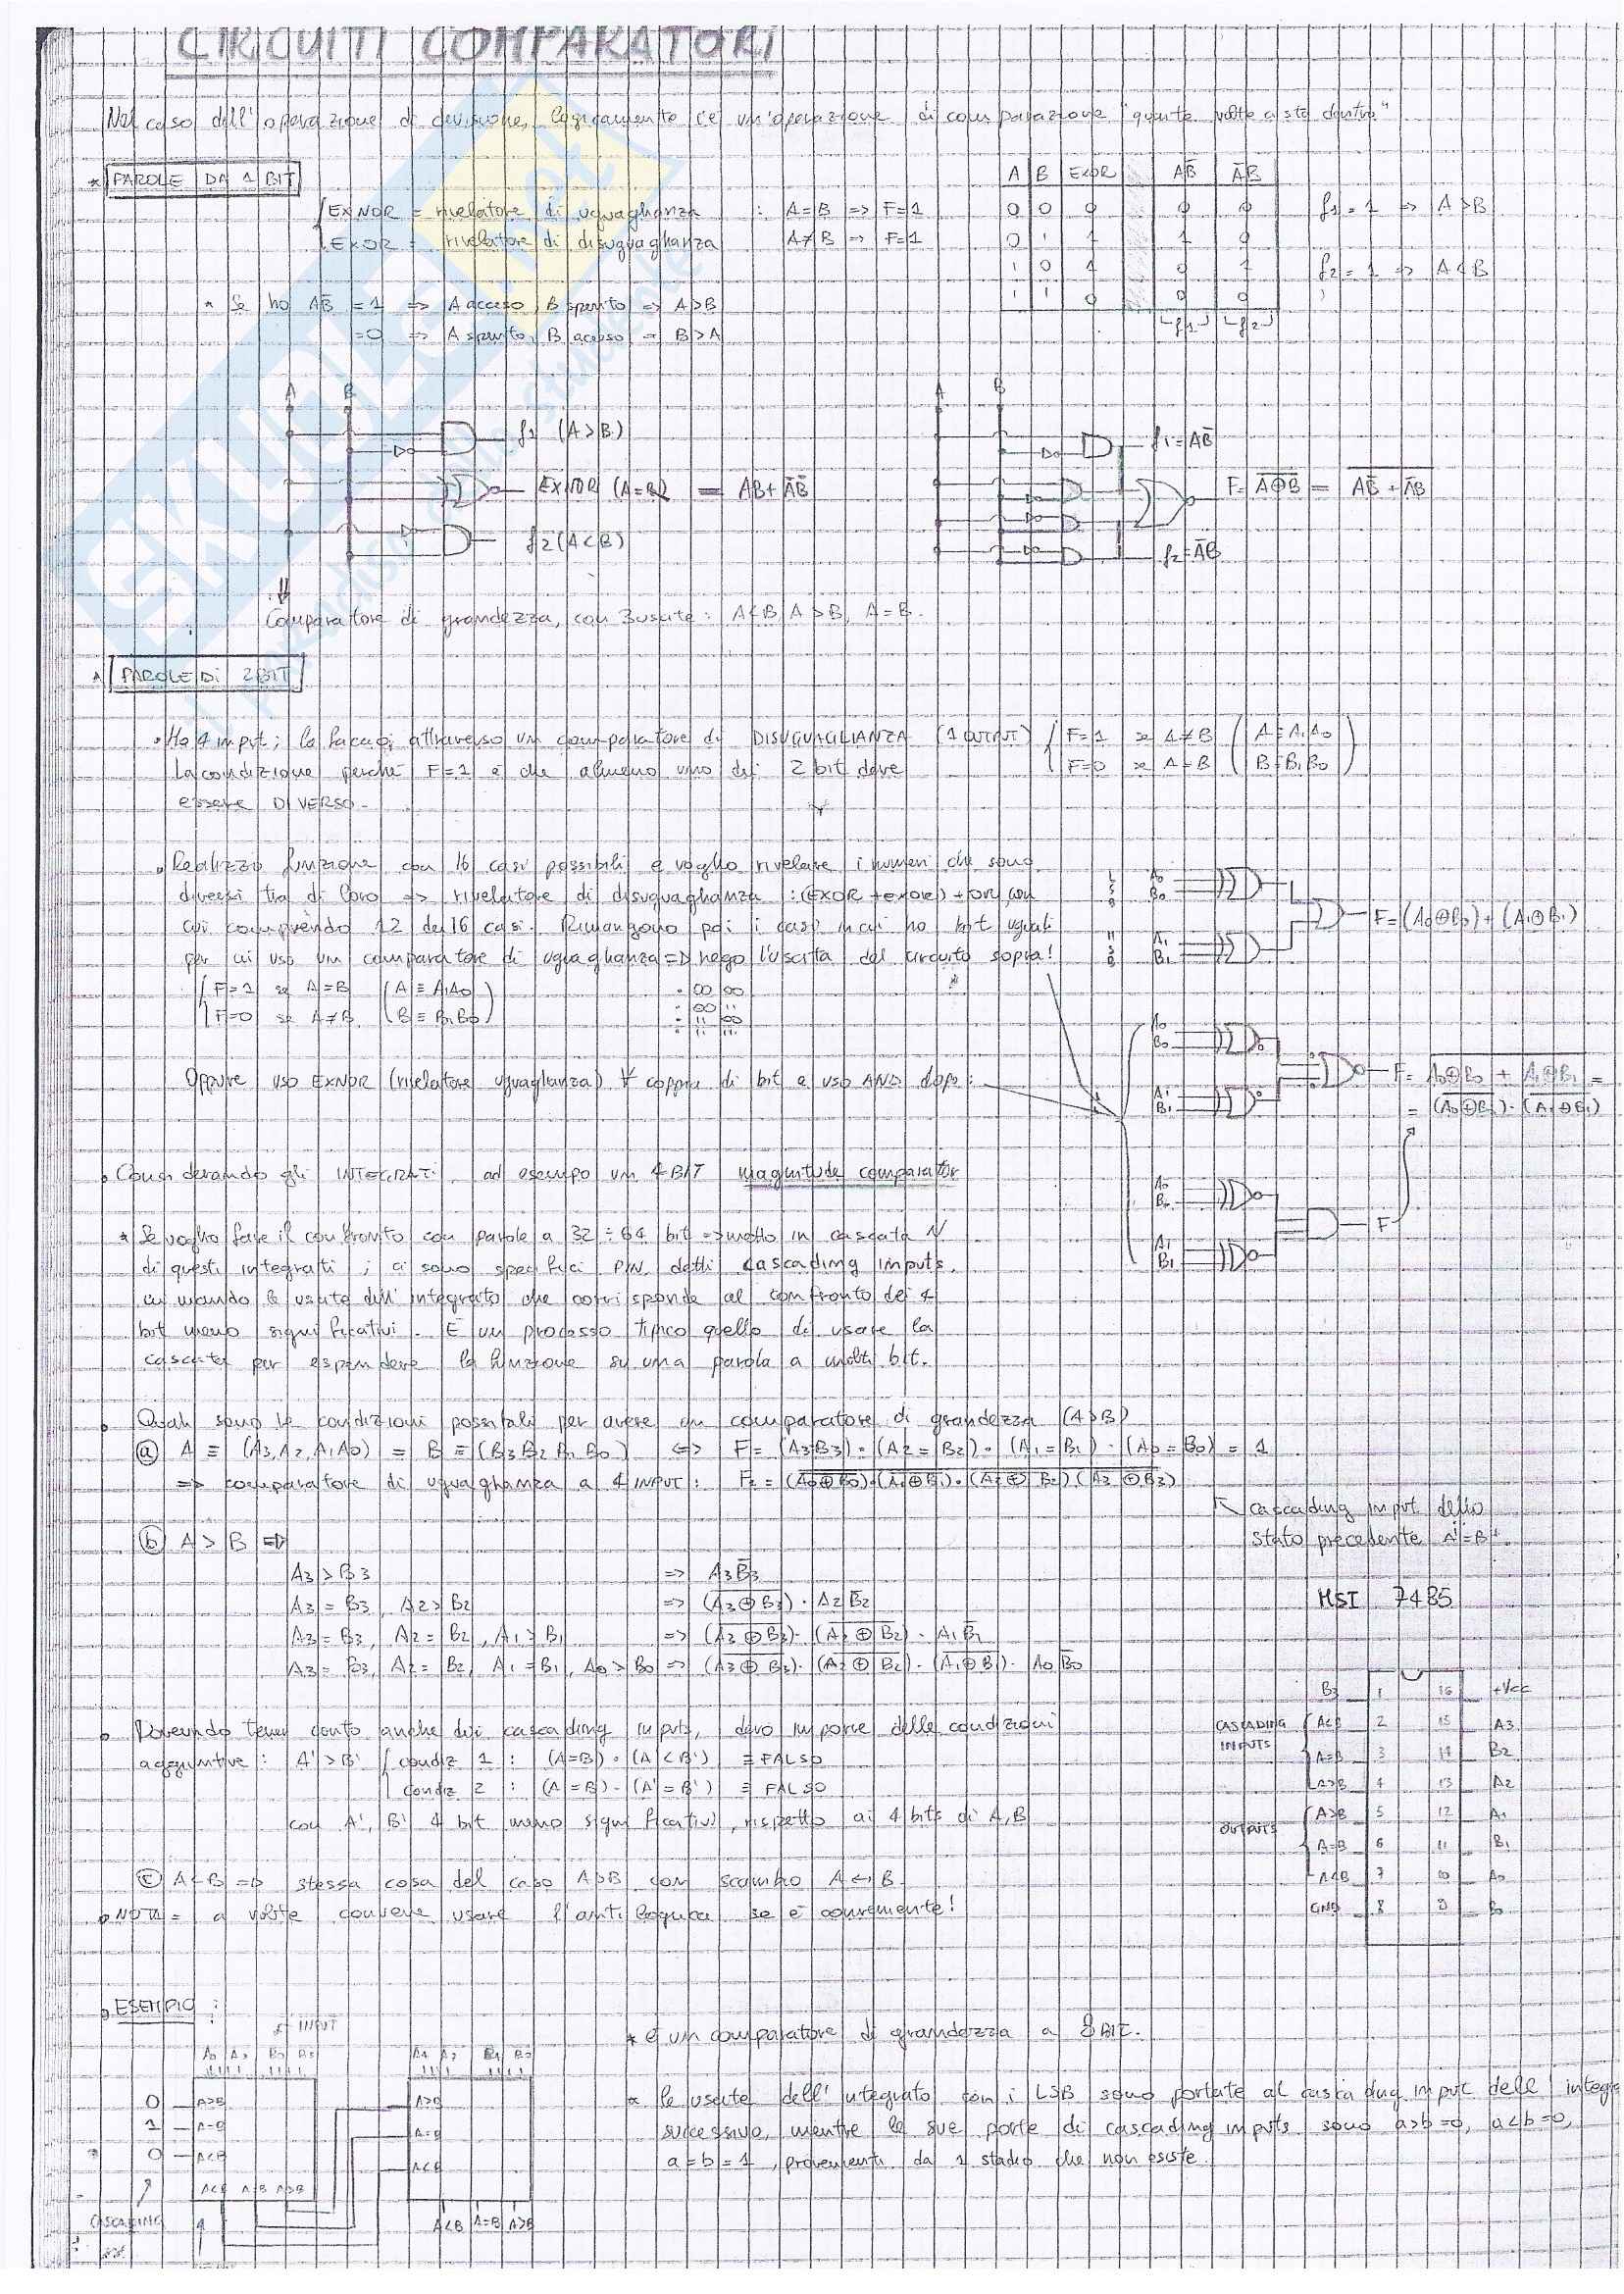 CIRCUITI COMPARATORI
Nel caso dell'operazione di divisione, logicamente c'è un'operazione di comparazione "quante volte ci sta dentro"
* PAROLE DA 1 BIT
EXNOR = rivelatore di uguaglianza : A=B => F=1
EXOR = rivelatore di disuguaglianza A≠B => F=1
* Se ho AB̅ =1 => A acceso, B spento => A>B
=0 => A spento, B acceso => B>A
A B EXOR AB̅ A̅B
0 0 0 0 0
0 1 1 1 0
1 0 1 0 1
1 1 0 0 0
f1 f2
f1=1 => A>B
f2=1 => A<B
A B
f1 (A>B)
EXNOR (A=B) = AB+A̅B̅
f2(A<B)
A B
f1=AB̅
F= \overline{A⊕B} = \overline{AB̅ + A̅B}
f2=A̅B
Comparatore di grandezza, con 3 uscite: A<B, A>B, A=B.
PAROLE DI 2 BIT
• Ho 4 input; lo faccio attraverso un comparatore di DISUGUAGLIANZA (1 OUTPUT) F=1 se A≠B (A≡A1A0
La condizione perché F=1 è che almeno uno dei 2 bit deve F=0 se A=B B≡B1B0)
essere DIVERSO.
• Realizzo funzione con 16 casi possibili e voglio rivelare i numeri che sono
diversi tra di loro => rivelatore di disuguaglianza : (EXOR + exor) + OR, con
cui comprendo 12 dei 16 casi. Rimangono poi i casi in cui ho bit uguali
per cui uso un comparatore di uguaglianza => nego l'uscita del circuito sopra!
F=1 se A=B (A≡A1A0
F=0 se A≠B B≡B1B0)
• 00 00
• 00 11
• 11 00
• 11 11
A0
B0
A1
B1
F=(A0⊕B0)+(A1⊕B1)
Oppure uso EXNOR (rivelatore uguaglianza) ∀ coppia di bit e uso AND dopo:
A0
B0
A1
B1
F= \overline{A0⊕B0 + A1⊕B1} =
= (\overline{A0⊕B0})·(\overline{A1⊕B1})
A0
B0
A1
B1
F
• Considerando gli INTEGRATI, ad esempio un 4-BIT magnitude comparator
* Se voglio fare il confronto con parole a 32÷64 bit => metto in cascata N
di questi integrati; ci sono specifici PIN, detti cascading inputs,
cui mando le uscite dell'integrato che corrisponde al confronto dei 4
bit meno significativi. È un processo tipico quello di usare la
cascata per espandere la funzione su una parola a molti bit.
• Quali sono le condizioni possibili per avere un comparatore di grandezza (A>B)
(a) A ≡ (A3,A2,A1A0) = B ≡ (B3B2B1B0) <=> F= (A3B3)·(A2=B2)·(A1=B1)·(A0=B0) = 1
=> comparatore di uguaglianza a 4 INPUT: F= (\overline{A0⊕B0})·(\overline{A1⊕B1})·(\overline{A2⊕B2})(\overline{A3⊕B3})
cascading input dello
stato precedente A'=B'
(b) A > B =>
A3 > B3 => A3B̅3
A3 = B3, A2 > B2 => (\overline{A3⊕B3})·A2B̅2
A3=B3, A2=B2, A1>B1 => (\overline{A3⊕B3})·(\overline{A2⊕B2})·A1B̅1
A3=B3, A2=B2, A1=B1, A0>B0 => (\overline{A3⊕B3})·(\overline{A2⊕B2})·(\overline{A1⊕B1})·A0B̅0
MSI 7485
B3 1 16 +Vcc
CASCADING INPUTS A<B 2 15 A3
A=B 3 14 B2
A>B 4 13 A2
OUTPUTS A>B 5 12 A1
A=B 6 11 B1
A<B 7 10 A0
GND 8 9 B0
• Dovendo tener conto anche dei cascading inputs, devo imporre delle condizioni
aggiuntive: A'>B' condiz 1: (A=B)·(A'<B') ≡ FALSO
condiz 2: (A=B)·(A'=B') ≡ FALSO
con A', B' 4 bit meno significativi, rispetto ai 4 bits di A,B
(c) A<B => stessa cosa del caso A>B con scambio A<->B.
• NOTA= a volte conviene usare l'anti logica se è conveniente!
• ESEMPIO:
INPUT
* è un comparatore di grandezza a 8 BIT.
0 A>B
1 A=B
0 A<B
A<B A=B A>B
CASCADING
4
A>B
A=B
A<B
A<B A=B A>B
* le uscite dell'integrato con i LSB sono portate al cascading input dell'
successivo, mentre le sue porte di cascading inputs sono a>b=0, a<b=0,
a=b=1, provenienti da 1 stadio che non esiste.